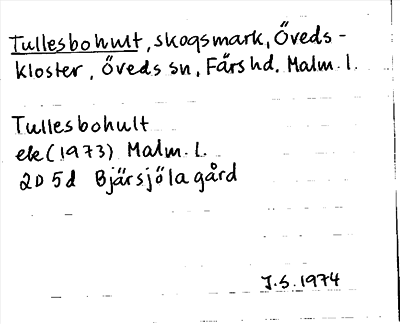 Tullesbohult, skogsmark, Öveds-
kloster, Öveds sn, Färs hd. Malm. l.
Tullesbohult
ek (1973) Malm. l.
2D 5d Bjärsjölagård
J.S. 1974